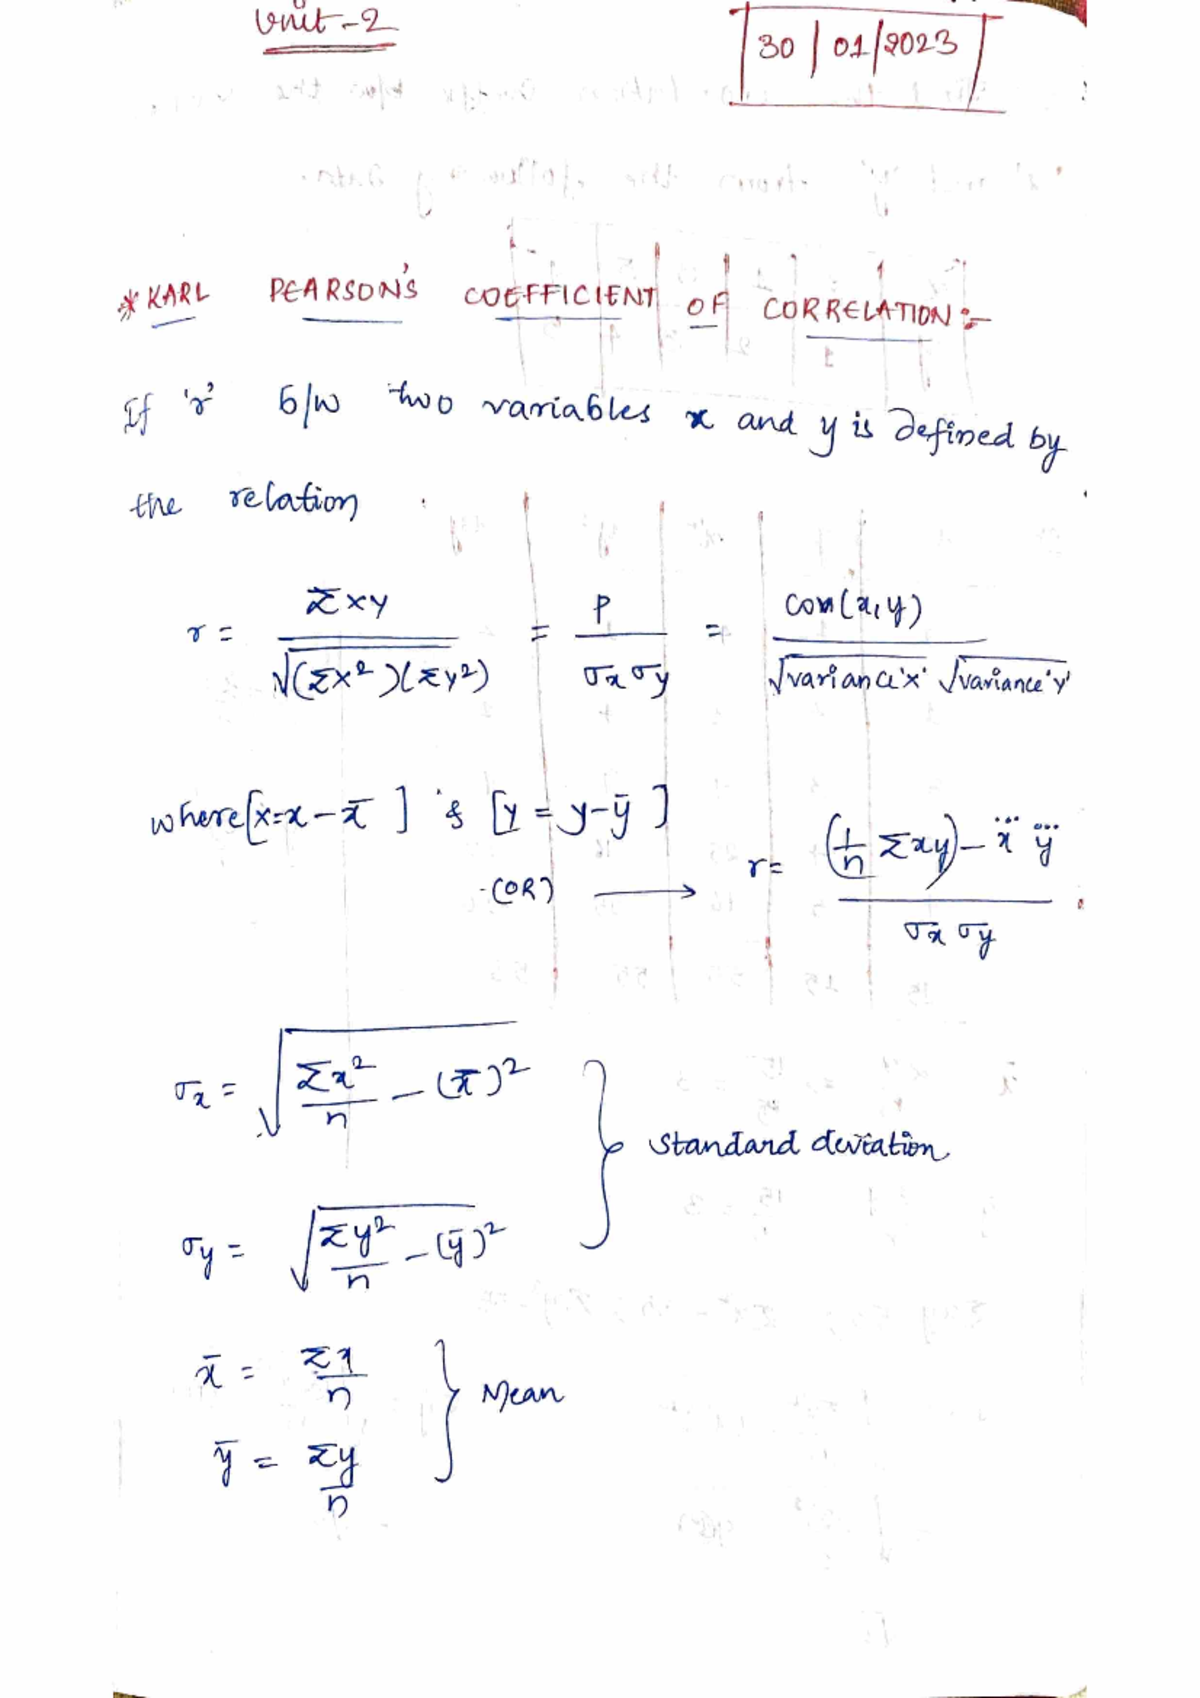 Unit-2
30/01/2023
* KARL PEARSON'S COEFFICIENT OF CORRELATION :-
If 'r' b/w two variables x and y is defined by
the relation
r = Σxy / √(Σx²)(Σy²) = P / σx σy = cov(x,y) / √variance'x' √variance'y'
where [x=x-x̄] & [y=y-ȳ]
(OR) → r = (1/n Σxy) - x̄ ȳ / σx σy
σx = √Σx²/n - (x̄)²
Standard deviation
σy = √Σy²/n - (ȳ)²
x̄ = Σx/n
Mean
ȳ = Σy/n